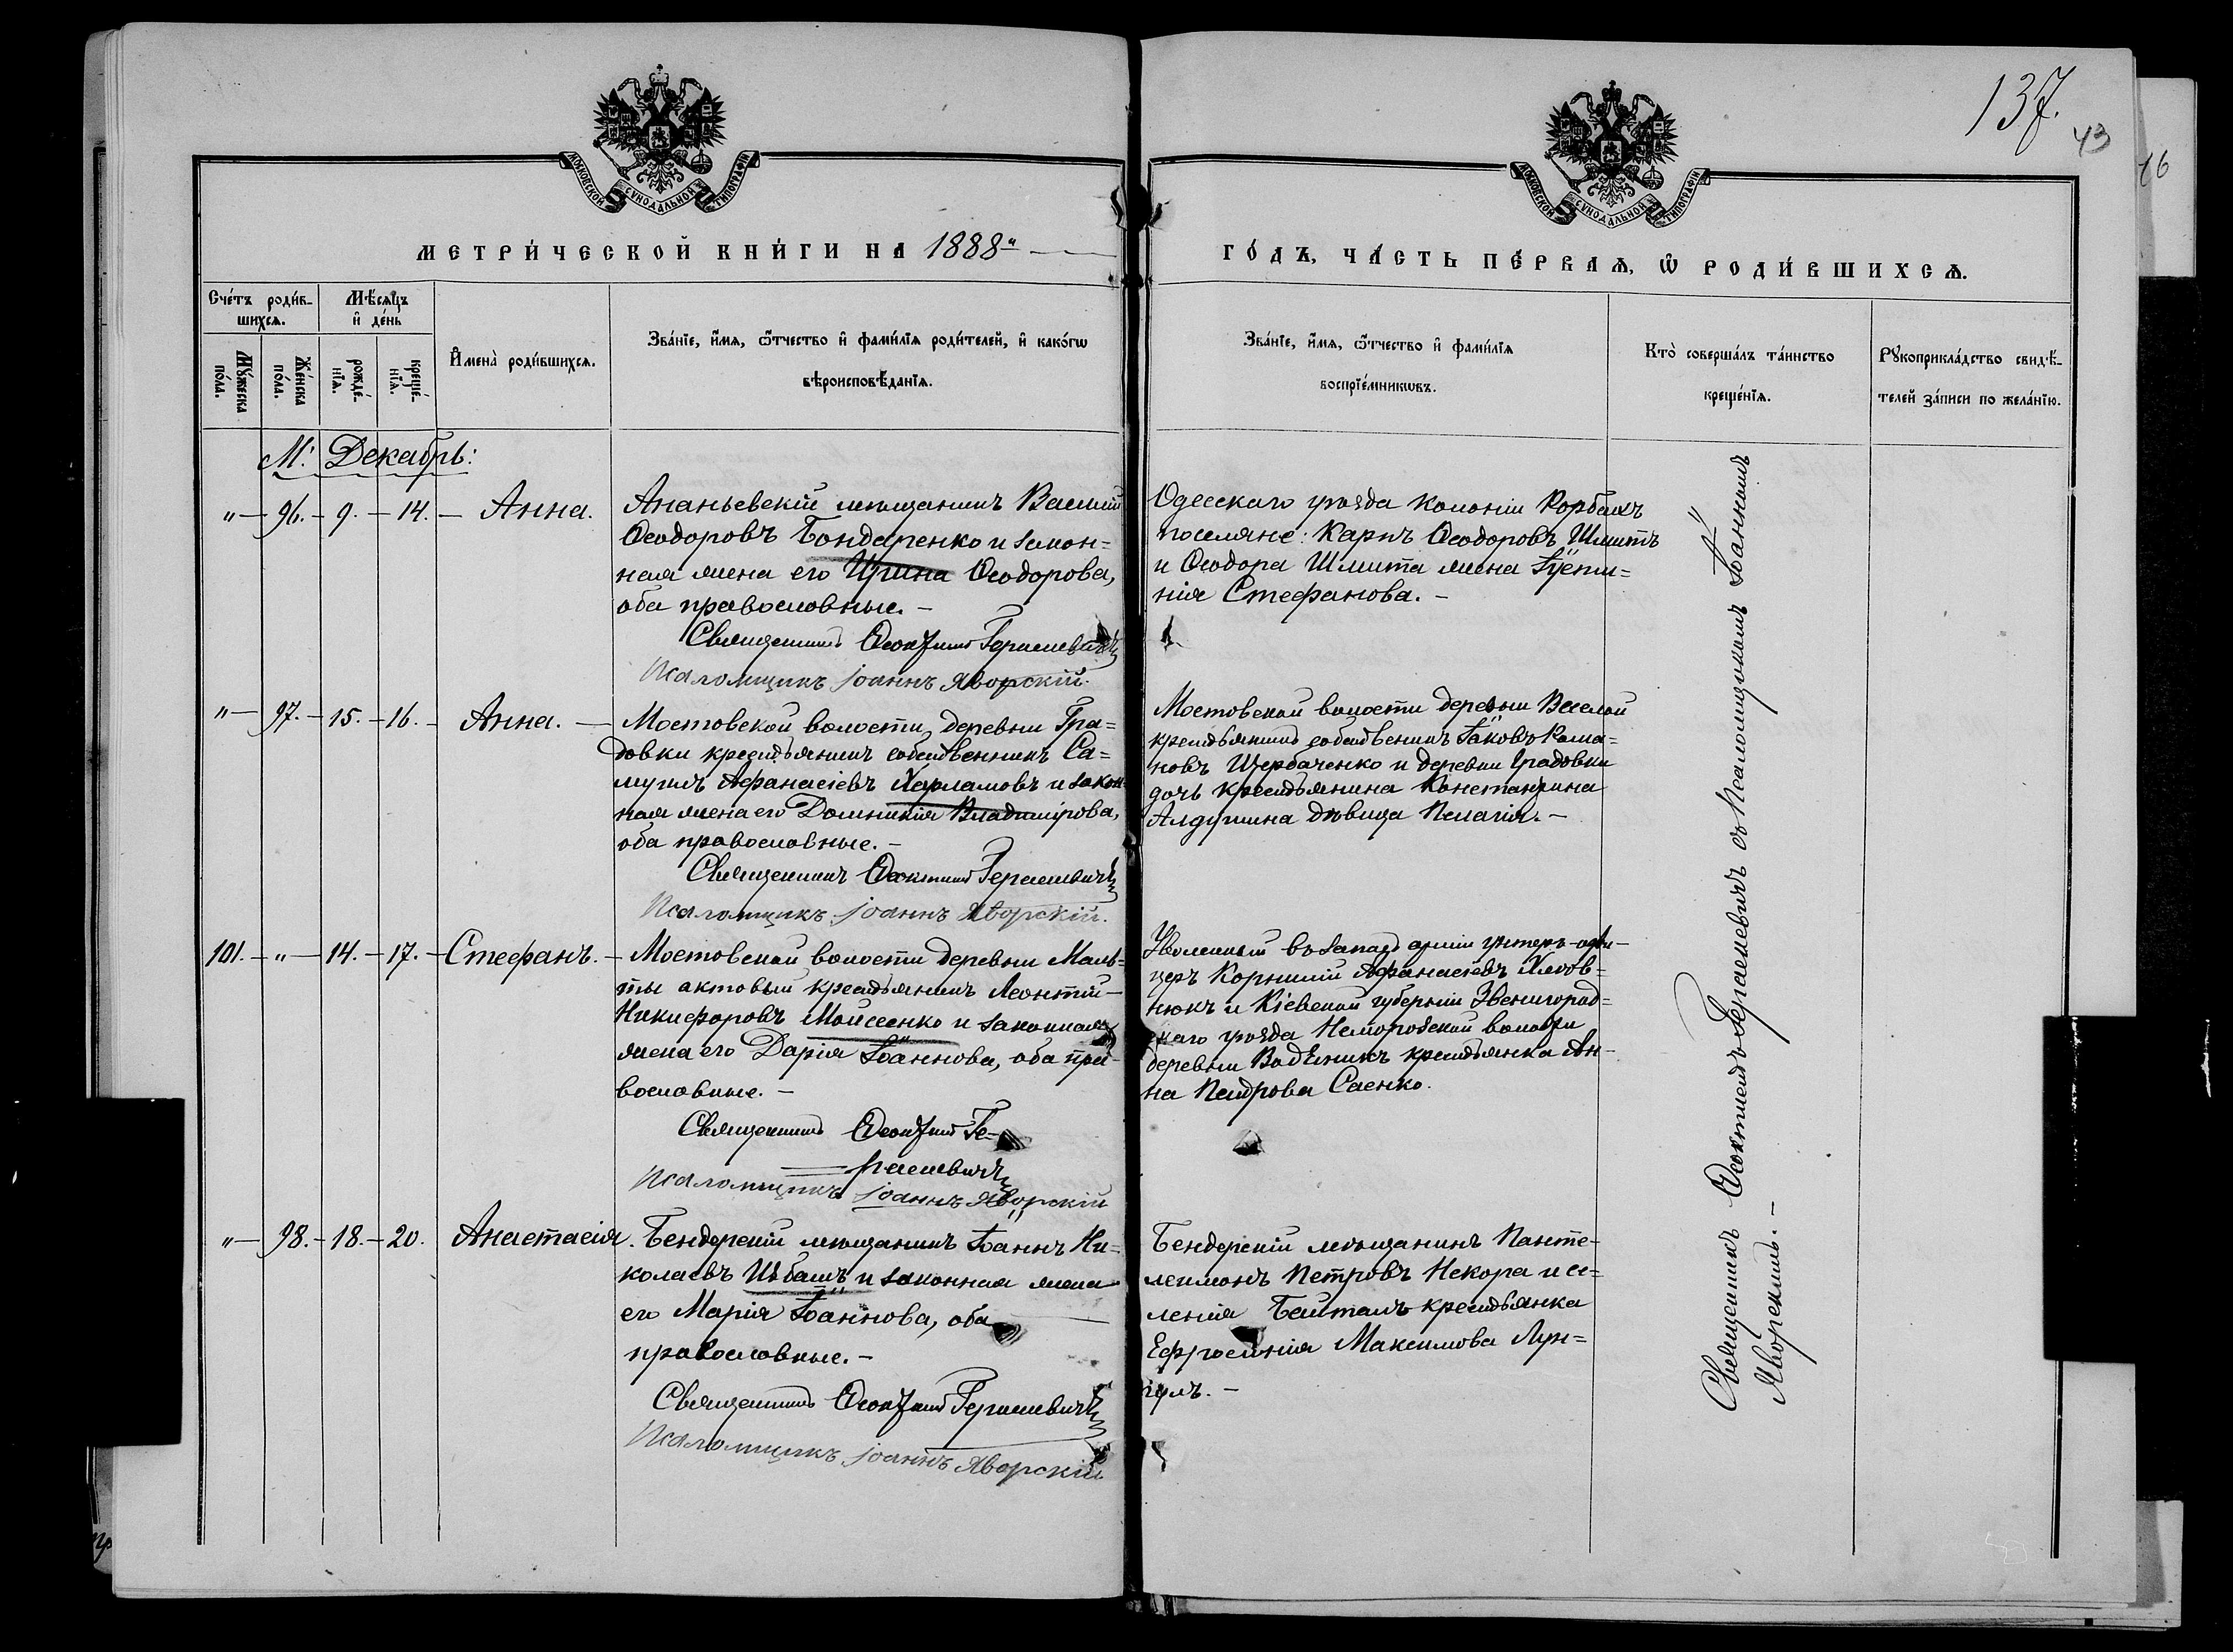 137.
43
16
МОСКОВСКОЙ СѴНОДАЛЬНОЙ ТИПОГРАФІИ
МОСКОВСКОЙ СѴНОДАЛЬНОЙ ТИПОГРАФІИ
МЕТРИ́ЧЕСКОЙ КНИ́ГИ НА 1888-"
ГО́ДЪ, ЧА́СТЬ ПЕ́РВАѦ, Ѿ РОДИ́ВШИХСѦ.
Сче́тъ роди́в-
шихсѧ.
Мѣ́сѧцъ
и де́нь
Мꙋ́жеска
по́ла.
Же́нска
по́ла.
рожде́-
нїѧ.
креще́-
нїѧ.
Имена̀ роди́вшихсѧ.
Зва́нїе, и́мѧ, ѻ́тчество и фами́лїѧ роди́телей, и како́гѡ
вѣроисповѣ́данїѧ.
Зва́нїе, и́мѧ, ѻ́тчество и фами́лїѧ
воспрїе́мникѡвъ.
Кто̀ соверша́лъ та́инство
креще́нїѧ.
Рꙋкоприкла́дство свидѣ́-
телей за́писи по жела́нїю.
М: Декабрь:
"— 96.— 9.— 14.— Анна.
Ананьевскій мѣщанинъ Василій
Ѳеодоровъ Бондаренко и закон=
ная жена его Ирина Ѳеодорова,
оба православные.—
Священникъ Ѳеоктистъ Герасевичъ
Псаломщикъ Іоаннъ Яворскій.
Одесскаго уѣзда колоніи
поселяне: Карпъ Ѳеодоровъ Шмитъ
и Ѳеодора Шмита жена
нія Стефанова.—
"— 97.— 15.— 16.— Анна.—
Мостовской волости, деревни Гра=
довки крестьянинъ собственникъ Са=
муилъ Аѳанасіевъ Харламовъ и закон
ная жена его Домникія Владимірова,
оба православные.—
Священникъ Ѳеоктистъ Герасевичъ
Псаломщикъ Іоаннъ Яворскій.
Мостовской волости деревни Веселой
крестьянинъ собственникъ Іаковъ Рома=
новъ Щербаченко и деревни Градовки
дочь крестьянина Константина
дѣвица Пелагія.—
101.— "— 14.— 17.— Стефанъ.—
Мостовской волости деревни Маль=
ты актовый крестьянинъ Леонтій—
Никифоровъ Мойсеенко и законная
жена его Дарія Іоаннова, оба пра-
вославные.—
Священникъ Ѳеоктистъ Ге-
расевичъ
Псаломщикъ Іоаннъ Яворскій
Уволенный въ запасъ арміи унтеръ-офи-
церъ Корнилій Аѳанасіевъ
нюкъ и Кіевской губерніи Звенигород=
скаго уѣзда Неморовской волости
деревни Водяникъ крестьянка Ан-
на Петрова Саенко.
"— 98.— 18.— 20. Анастасія.
Бендерскій мѣщанинъ Іоаннъ Ни=
колаевъ и законная жена
его Марія Іоаннова, оба
православные.—
Священникъ Ѳеоктистъ Герасевичъ
Псаломщикъ Іоаннъ Яворскій
Бендерскій мѣщанинъ Панте-
леимонъ Петровъ Некора и се=
ленія крестьянка
Ефросинія Максимова Лун=
гулъ.—
Священникъ Ѳеоктистъ Герасевичъ съ Псаломщикомъ Іоанномъ
Яворскимъ.—